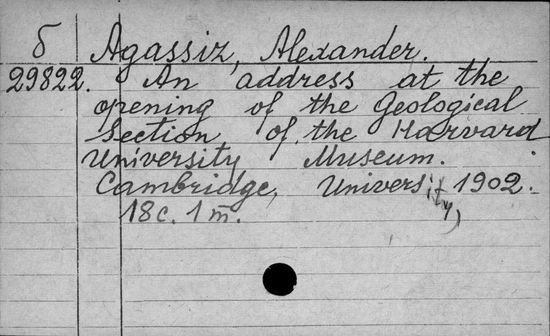 б Agassiz, Alexander.
29822. An address at the
opening of the Geological
Section of the Harvard
University Museum.
Cambridge, University, 1902.
18c. 1 m.